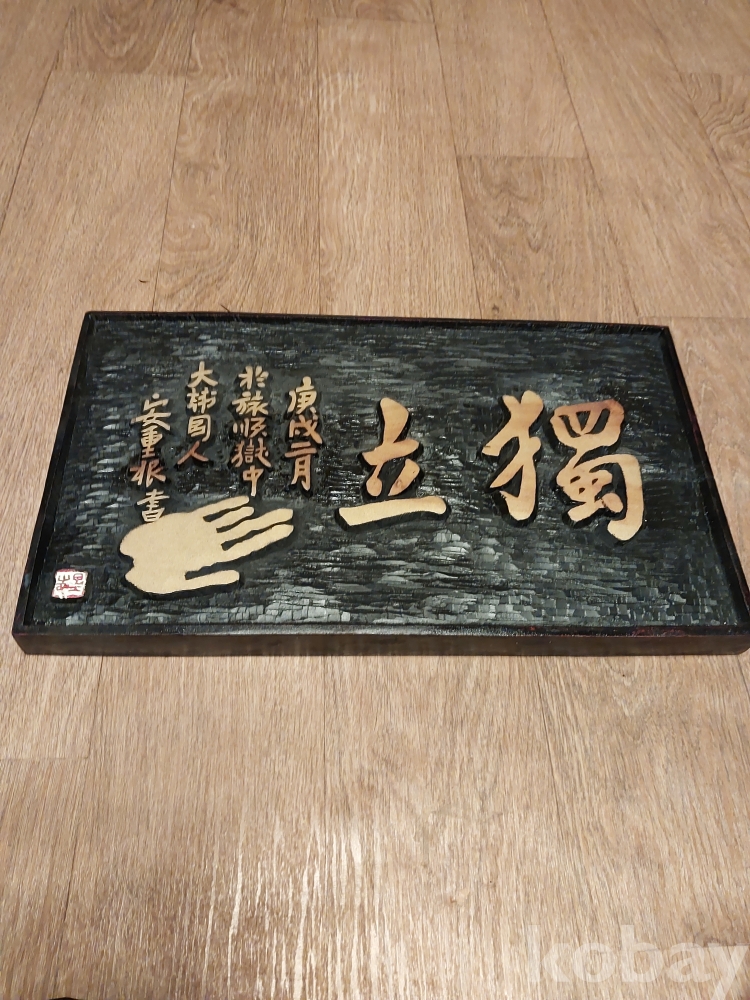 獨立
庚戌二月
於旅順獄中
大韓國人
安重根書
kobay